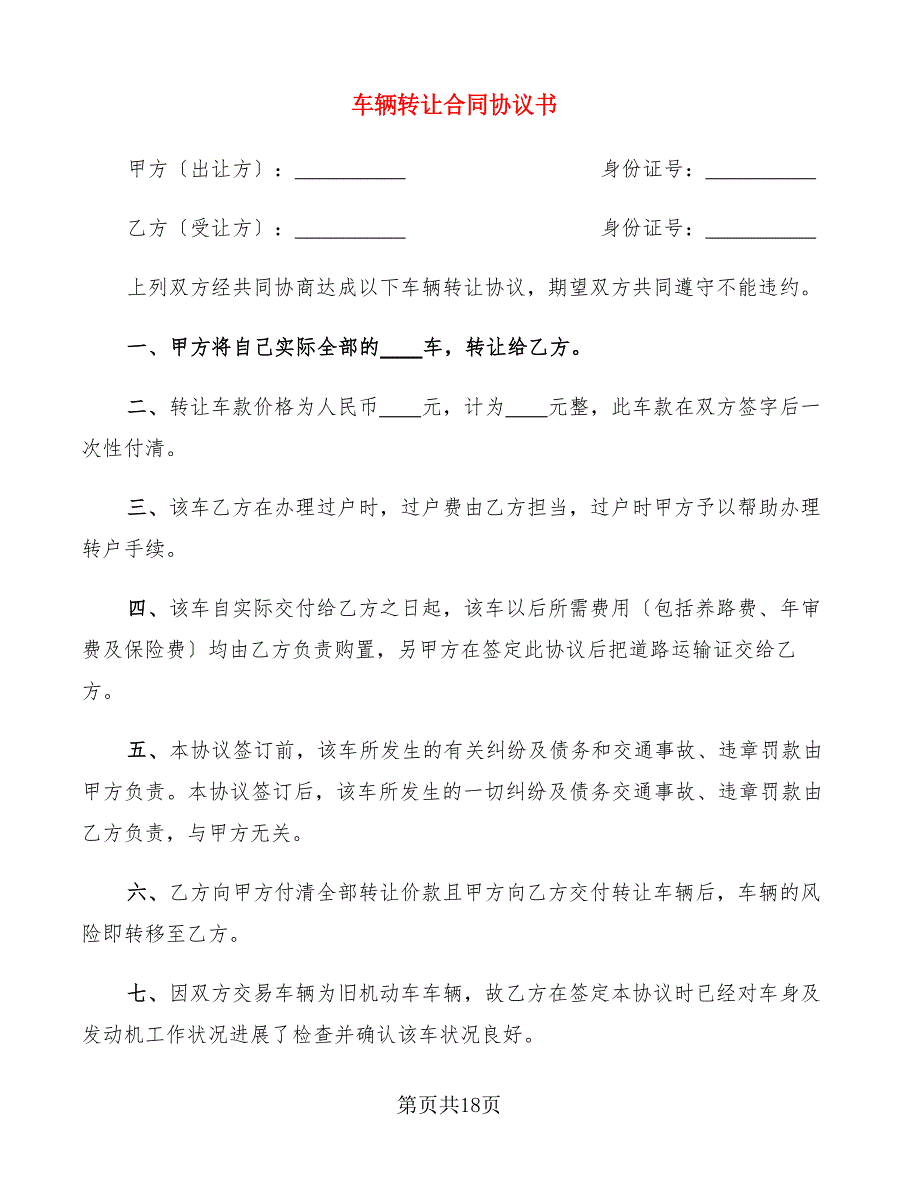 车辆转让合同协议书
甲方〔出让方〕：__________ 身份证号：__________
乙方〔受让方〕：__________ 身份证号：__________
上列双方经共同协商达成以下车辆转让协议，期望双方共同遵守不能违约。
一、甲方将自己实际全部的____车，转让给乙方。
二、转让车款价格为人民币____元，计为____元整，此车款在双方签字后一
次性付清。
三、该车乙方在办理过户时，过户费由乙方担当，过户时甲方予以帮助办理
转户手续。
四、该车自实际交付给乙方之日起，该车以后所需费用〔包括养路费、年审
费及保险费〕均由乙方负责购置，另甲方在签定此协议后把道路运输证交给乙
方。
五、本协议签订前，该车所发生的有关纠纷及债务和交通事故、违章罚款由
甲方负责。本协议签订后，该车所发生的一切纠纷及债务交通事故、违章罚款由
乙方负责，与甲方无关。
六、乙方向甲方付清全部转让价款且甲方向乙方交付转让车辆后，车辆的风
险即转移至乙方。
七、因双方交易车辆为旧机动车车辆，故乙方在签定本协议时已经对车身及
发动机工作状况进展了检查并确认该车状况良好。
第页共18页